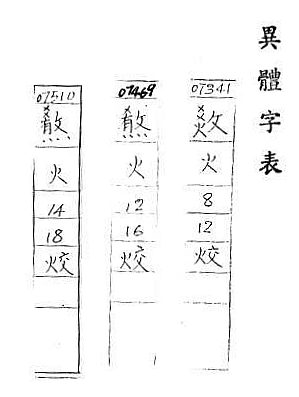 異體字表
07341
火
8
12
烄
07469
火
12
16
烄
07510
火
14
18
烄